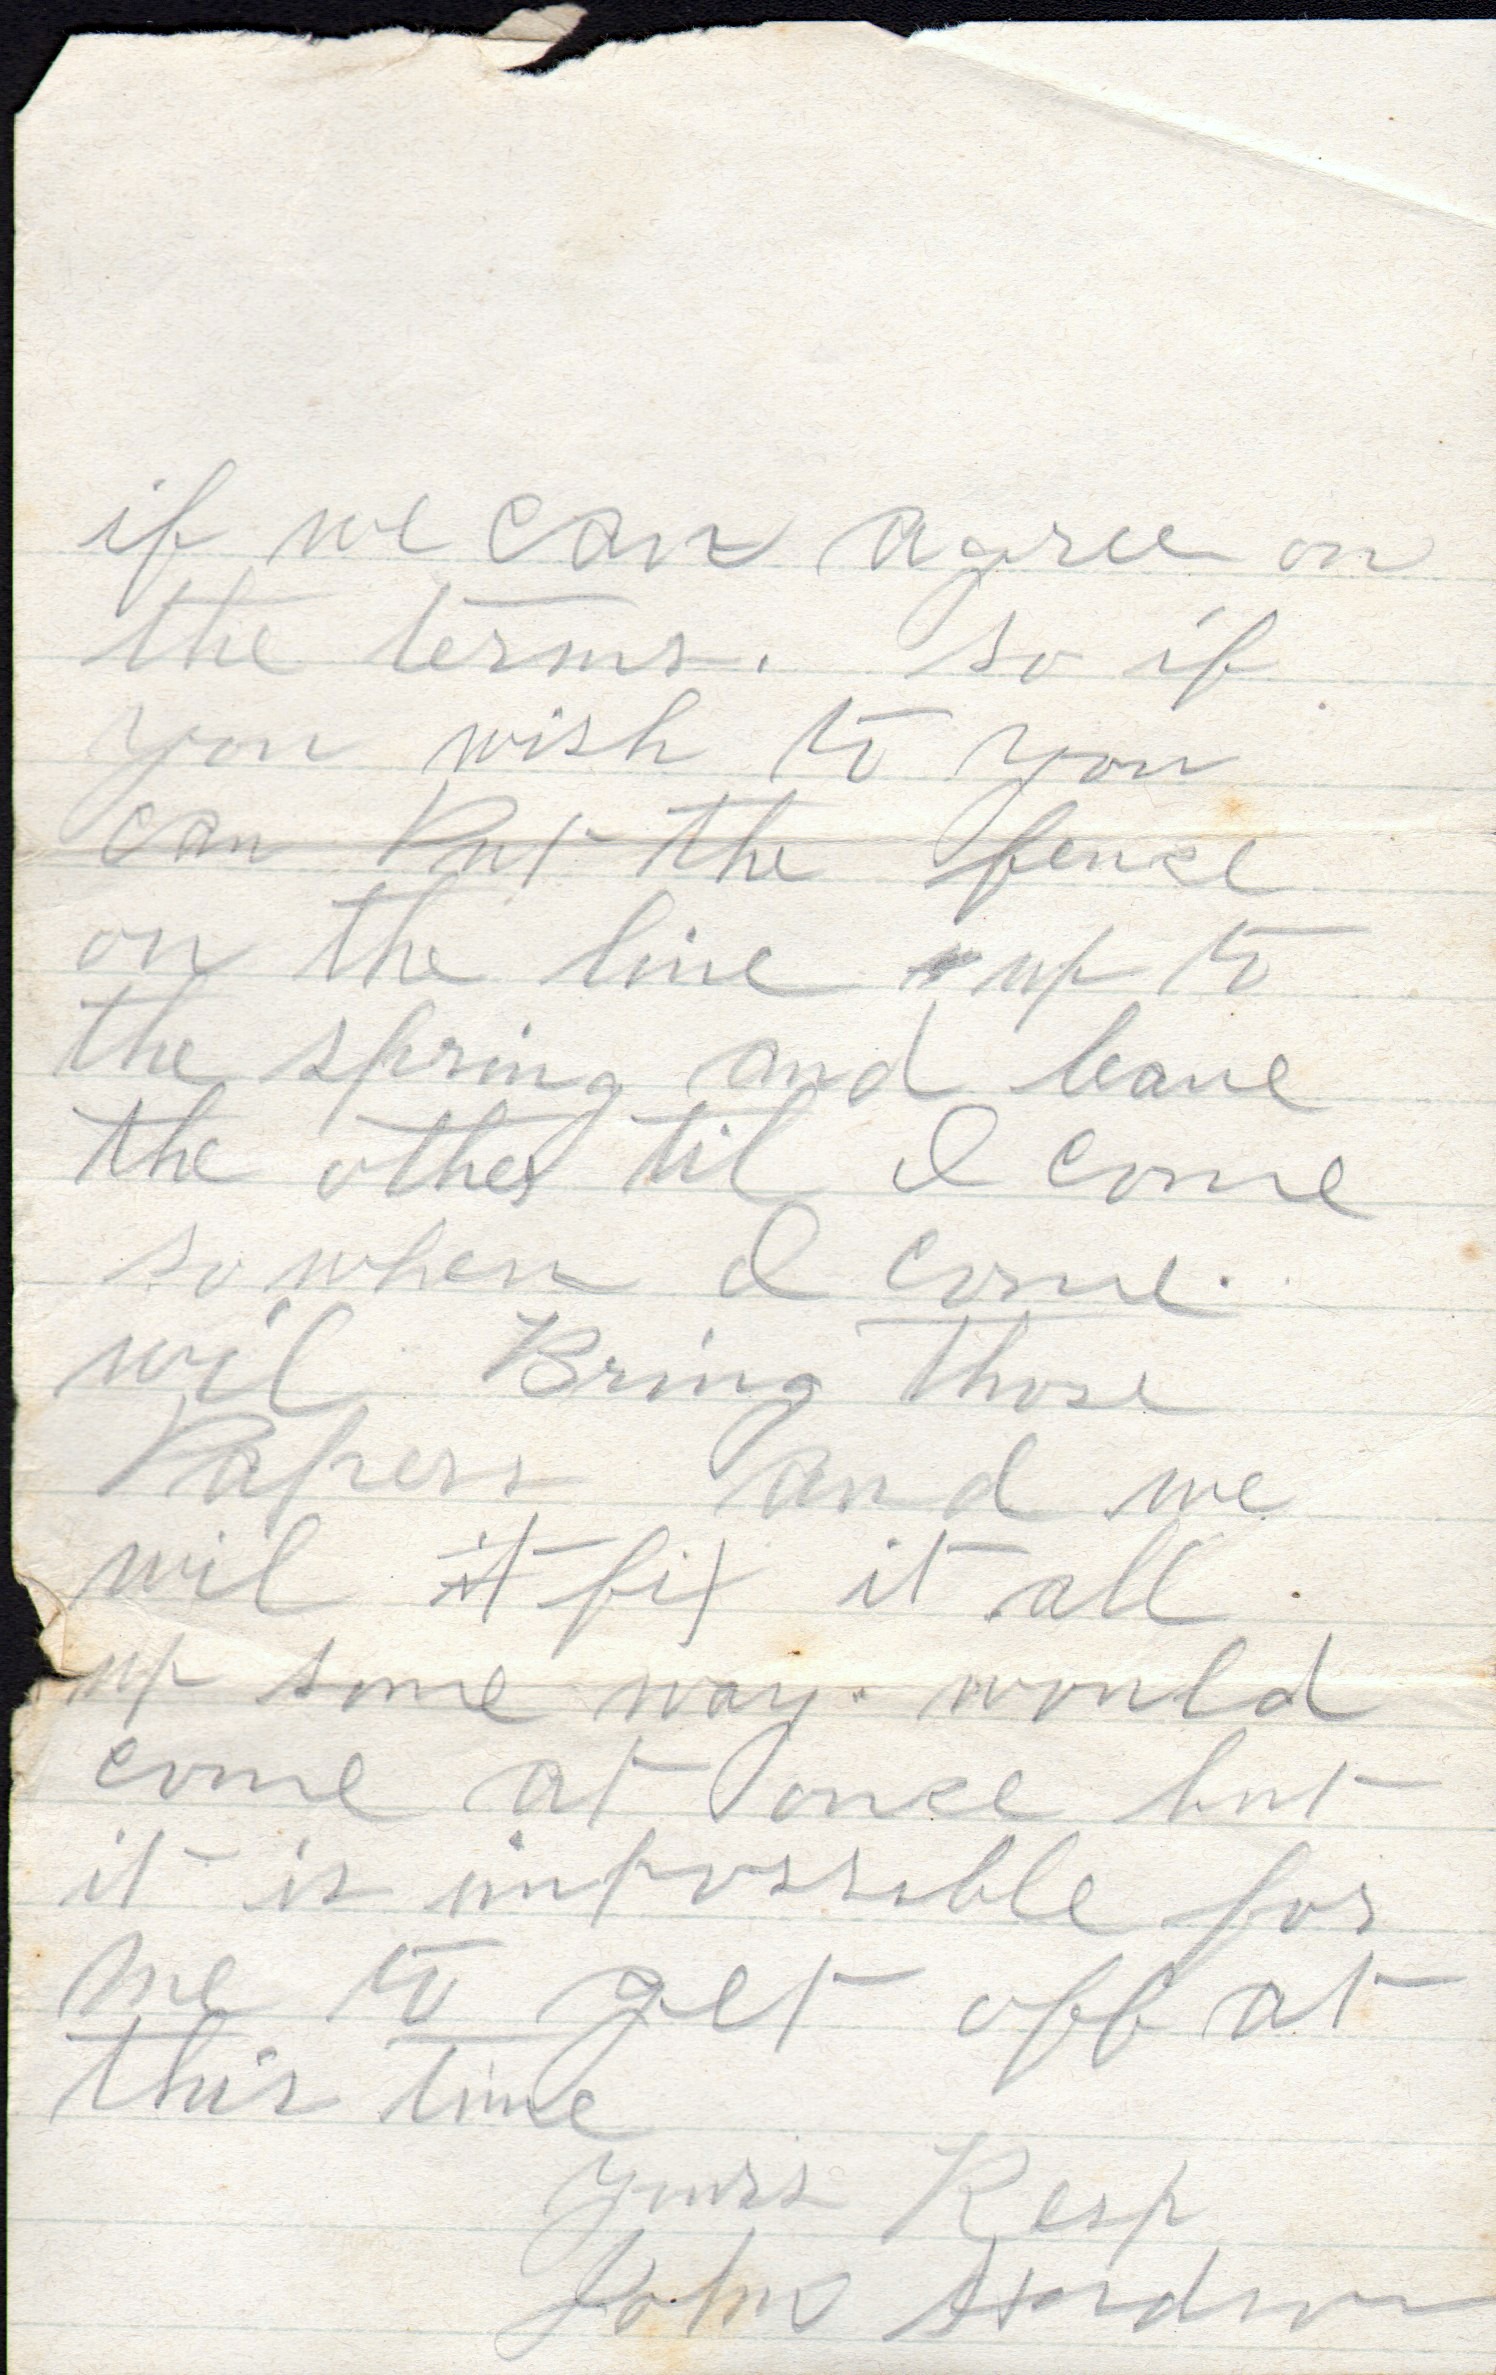 if we can agree on
the terms. So if
you wish to you
can Put the fense
on the line up to
the spring and leave
the other til I come
so when I come
wil Bring those
Papers and we
wil it fix it all
up some way. would
come at onse but
it is impossible for
me to get off at
this time
Yours Resp
John